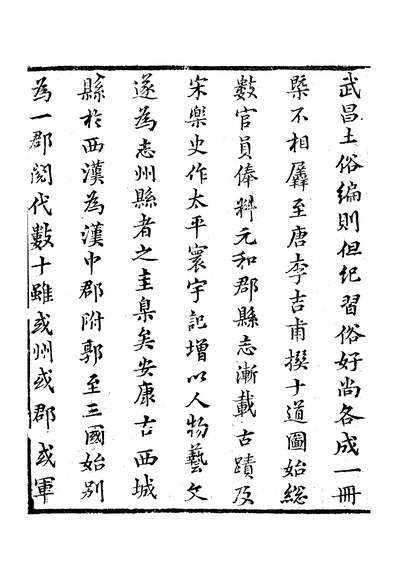 武昌土俗編則但紀習俗好尚各成一冊
槩不相羼至唐李吉甫撰十道圖始總
數官員俸料元和郡縣志漸載古蹟及
宋樂史作太平寰宇記增以人物藝文
遂為志州縣者之圭臬矣安康古西城
縣於西漢為漢中郡附郭至三國始别
為一郡閱代數十雖或州或郡或軍